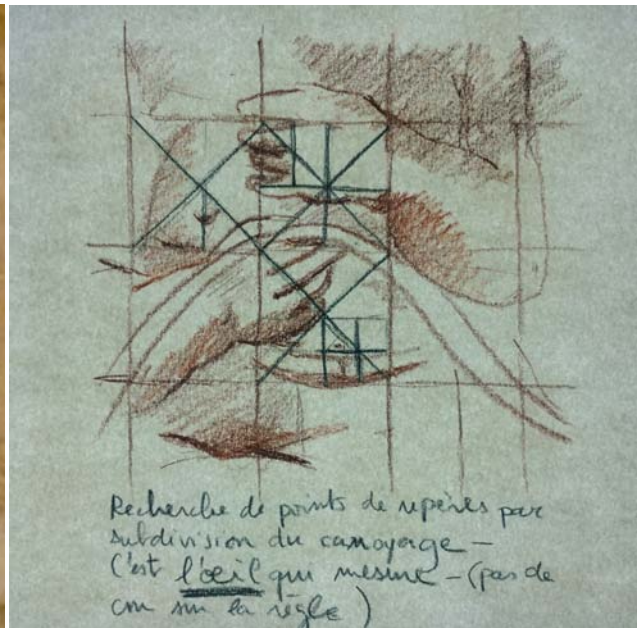 Recherche de points de repères par
subdivision du carroyage –
C'est l'œil qui mesure – (pas de
cm sur la règle)